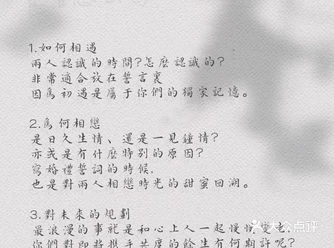 1.如何相遇
兩人認識的時間?怎麼認識的?
非常適合放在誓言裏
因爲初遇是屬于你們的獨家記憶。
2.爲何相戀
是日久生情、還是一見鐘情?
亦或是有什麼特別的原因?
寫婚禮誓詞的時候.
也是對兩人相戀時光的甜蜜回溯。
3.對未來的規劃
最浪漫的事就是和心上人一起慢慢變老
你們對即將攜手共度的餘生有何期許呢?
点评